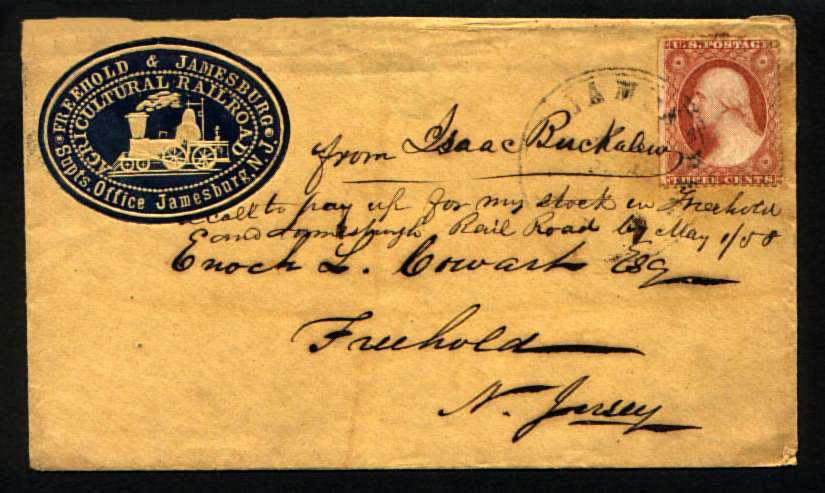 FREEHOLD & JAMESBURG
AGRICULTURAL RAILROAD
Supts. Office Jamesburg, N.J.
U.S. POSTAGE
THREE CENTS
JAM
from Isaac Buckalew
a call to pay up for my stock in Freehold
and Jamesburgh Rail Road by May 1/58
Enoch L. Cowart Esq
Freehold
N. Jersey